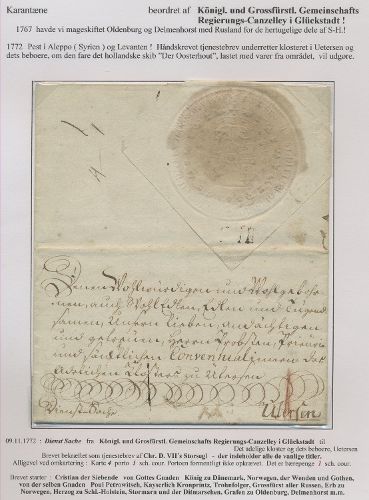 Karantæne beordret af Königl. und Grossfürstl. Gemeinschafts
Regierungs-Canzelley i Glückstadt !
1767 havde vi mageskiftet Oldenburg og Delmenhorst med Rusland for de hertugelige dele af S-H.!
1772 Pest i Aleppo ( Syrien ) og Levanten ! Håndskrevet tjenestebrev underretter klosteret i Uetersen og
dets beboere, om den fare det hollandske skib "Der Oosterhout", lastet med varer fra området, vil udgøre.
Denen Wohlwürdigen und Wohlgebohr
nen, auch Wohl Edlen, Edlen und Tugend
samen, Unsern lieben, andächtigen
und getreuen, Herrn Probsten, Priorin
und sämtlichen Conventualinnen des
Adelichen Closters zu Utersen
Dienst Sache
Utersen
09.11.1772 : Dienst Sache fra Königl. und Grossfürstl. Gemeinschafts Regierungs-Canzelley i Glückstadt til
Det adelige kloster og dets beboere, i Uetersen
Brevet bekræftet som (tjenestebrev af) Chr. D. VII's Storsegl - der indeholder alle de vanlige titler.
Alligevel ved omkartering : Karte 4 porto 1 sch. cour. Portoen formentlig ikke opkrævet. Det er hærepenge 1 sch. cour.
Brevet starter : Cristian der Siebende von Gottes Gnaden König zu Dänemark, Norwegen, der Wenden und Gothen,
von der selben Gnaden Paul Petrowitsch, Kayserlich Kronprintz, Trohnfolger, Grossfürst aller Reussen, Erb zu
Norwegen, Herzog zu Schl.-Holstein, Stormarn und der Ditmarschen, Grafen zu Oldenburg, Delmenhorst m.m.